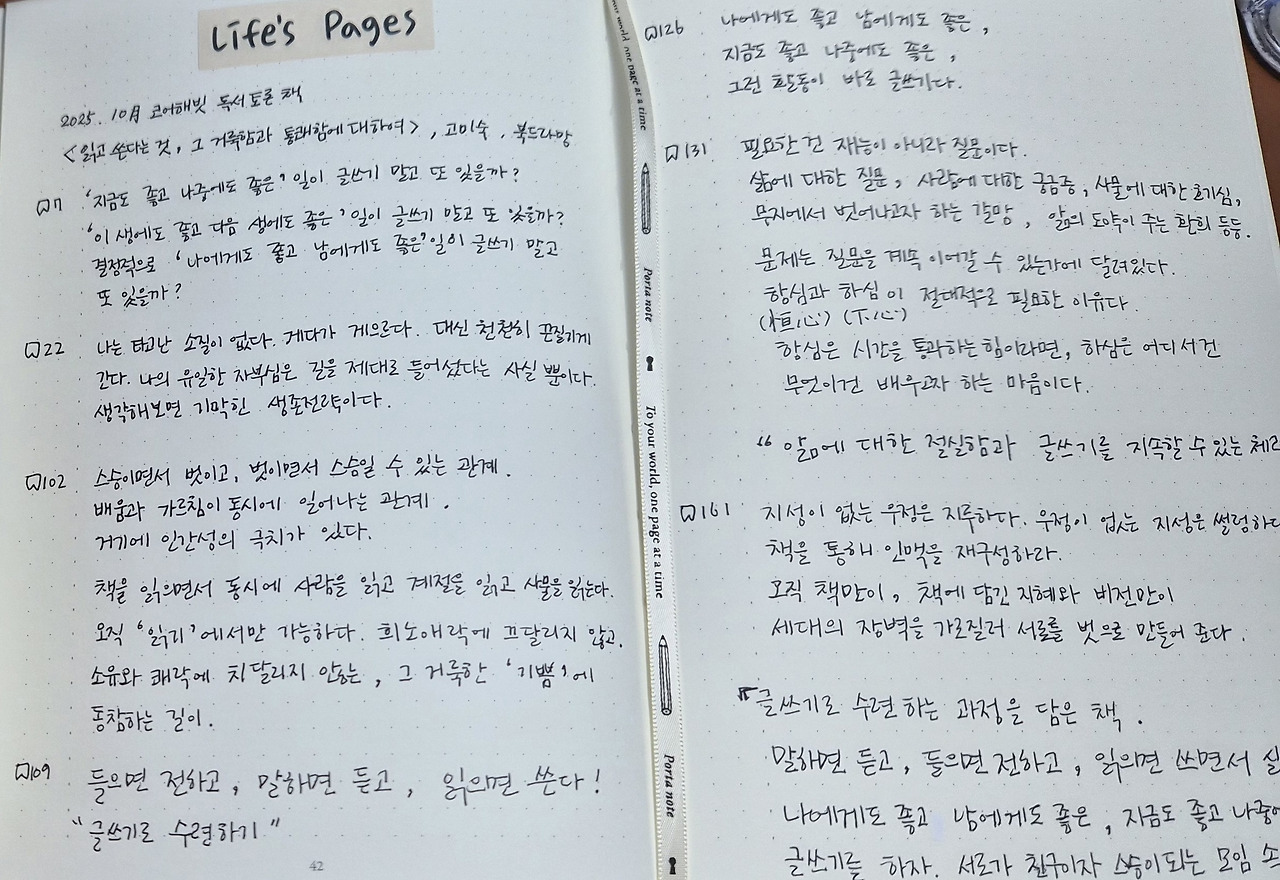 Life's Pages
2025. 10月 코어해빗 독서토론 책
<읽고 쓴다는 것, 그 거룩함과 통쾌함에 대하여>, 고미숙, 북드라망
7 '지금도 좋고 나중에도 좋은' 일이 글쓰기 말고 또 있을까?
'이 생에도 좋고 다음 생에도 좋은' 일이 글쓰기 말고 또 있을까?
결정적으로 '나에게도 좋고 남에게도 좋은' 일이 글쓰기 말고
또 있을까?
22 나는 타고난 소질이 없다. 게다가 게으르다. 대신 천천히 끈질기게
간다. 나의 유일한 자부심은 길을 제대로 들어섰다는 사실 뿐이다.
생각해보면 기막힌 생존전략이다.
102 스승이면서 벗이고, 벗이면서 스승일 수 있는 관계.
배움과 가르침이 동시에 일어나는 관계.
거기에 인간성의 극치가 있다.
책을 읽으면서 동시에 사람을 읽고 계절을 읽고 사물을 읽는다.
오직 '읽기'에서만 가능하다. 희노애락에 끄달리지 않고,
소유와 쾌락에 치달리지 않는, 그 거룩한 '기쁨'에
동참하는 길이.
109 들으면 전하고, 말하면 듣고, 읽으면 쓴다!
"글쓰기로 수련하기"
42
your world, one page at a time
Porta note
To your world, one page at a time
Porta note
126 나에게도 좋고 남에게도 좋은,
지금도 좋고 나중에도 좋은,
그런 활동이 바로 글쓰기다.
131 필요한 건 재능이 아니라 질문이다.
삶에 대한 질문, 사람에 대한 궁금증, 사물에 대한 호기심,
무지에서 벗어나고자 하는 갈망, 앎의 도약이 주는 환희 등등.
문제는 질문을 계속 이어갈 수 있는가에 달려있다.
항심과 하심이 절대적으로 필요한 이유다.
(恒心) (下心)
항심은 시간을 통과하는 힘이라면, 하심은 어디서건
무엇이건 배우고자 하는 마음이다.
“ 앎에 대한 절실함과 글쓰기를 지속할 수 있는 체력
161 지성이 없는 우정은 지루하다. 우정이 없는 지성은 썰렁하다
책을 통해 인맥을 재구성하라.
오직 책만이, 책에 담긴 지혜와 비전만이
세대의 장벽을 가로질러 서로를 벗으로 만들어 준다.
글쓰기로 수련하는 과정을 담은 책.
말하면 듣고, 들으면 전하고, 읽으면 쓰면서
나에게도 좋고 남에게도 좋은, 지금도 좋고 나중에
글쓰기를 하자. 서로가 친구이자 스승이 되는 모임 속